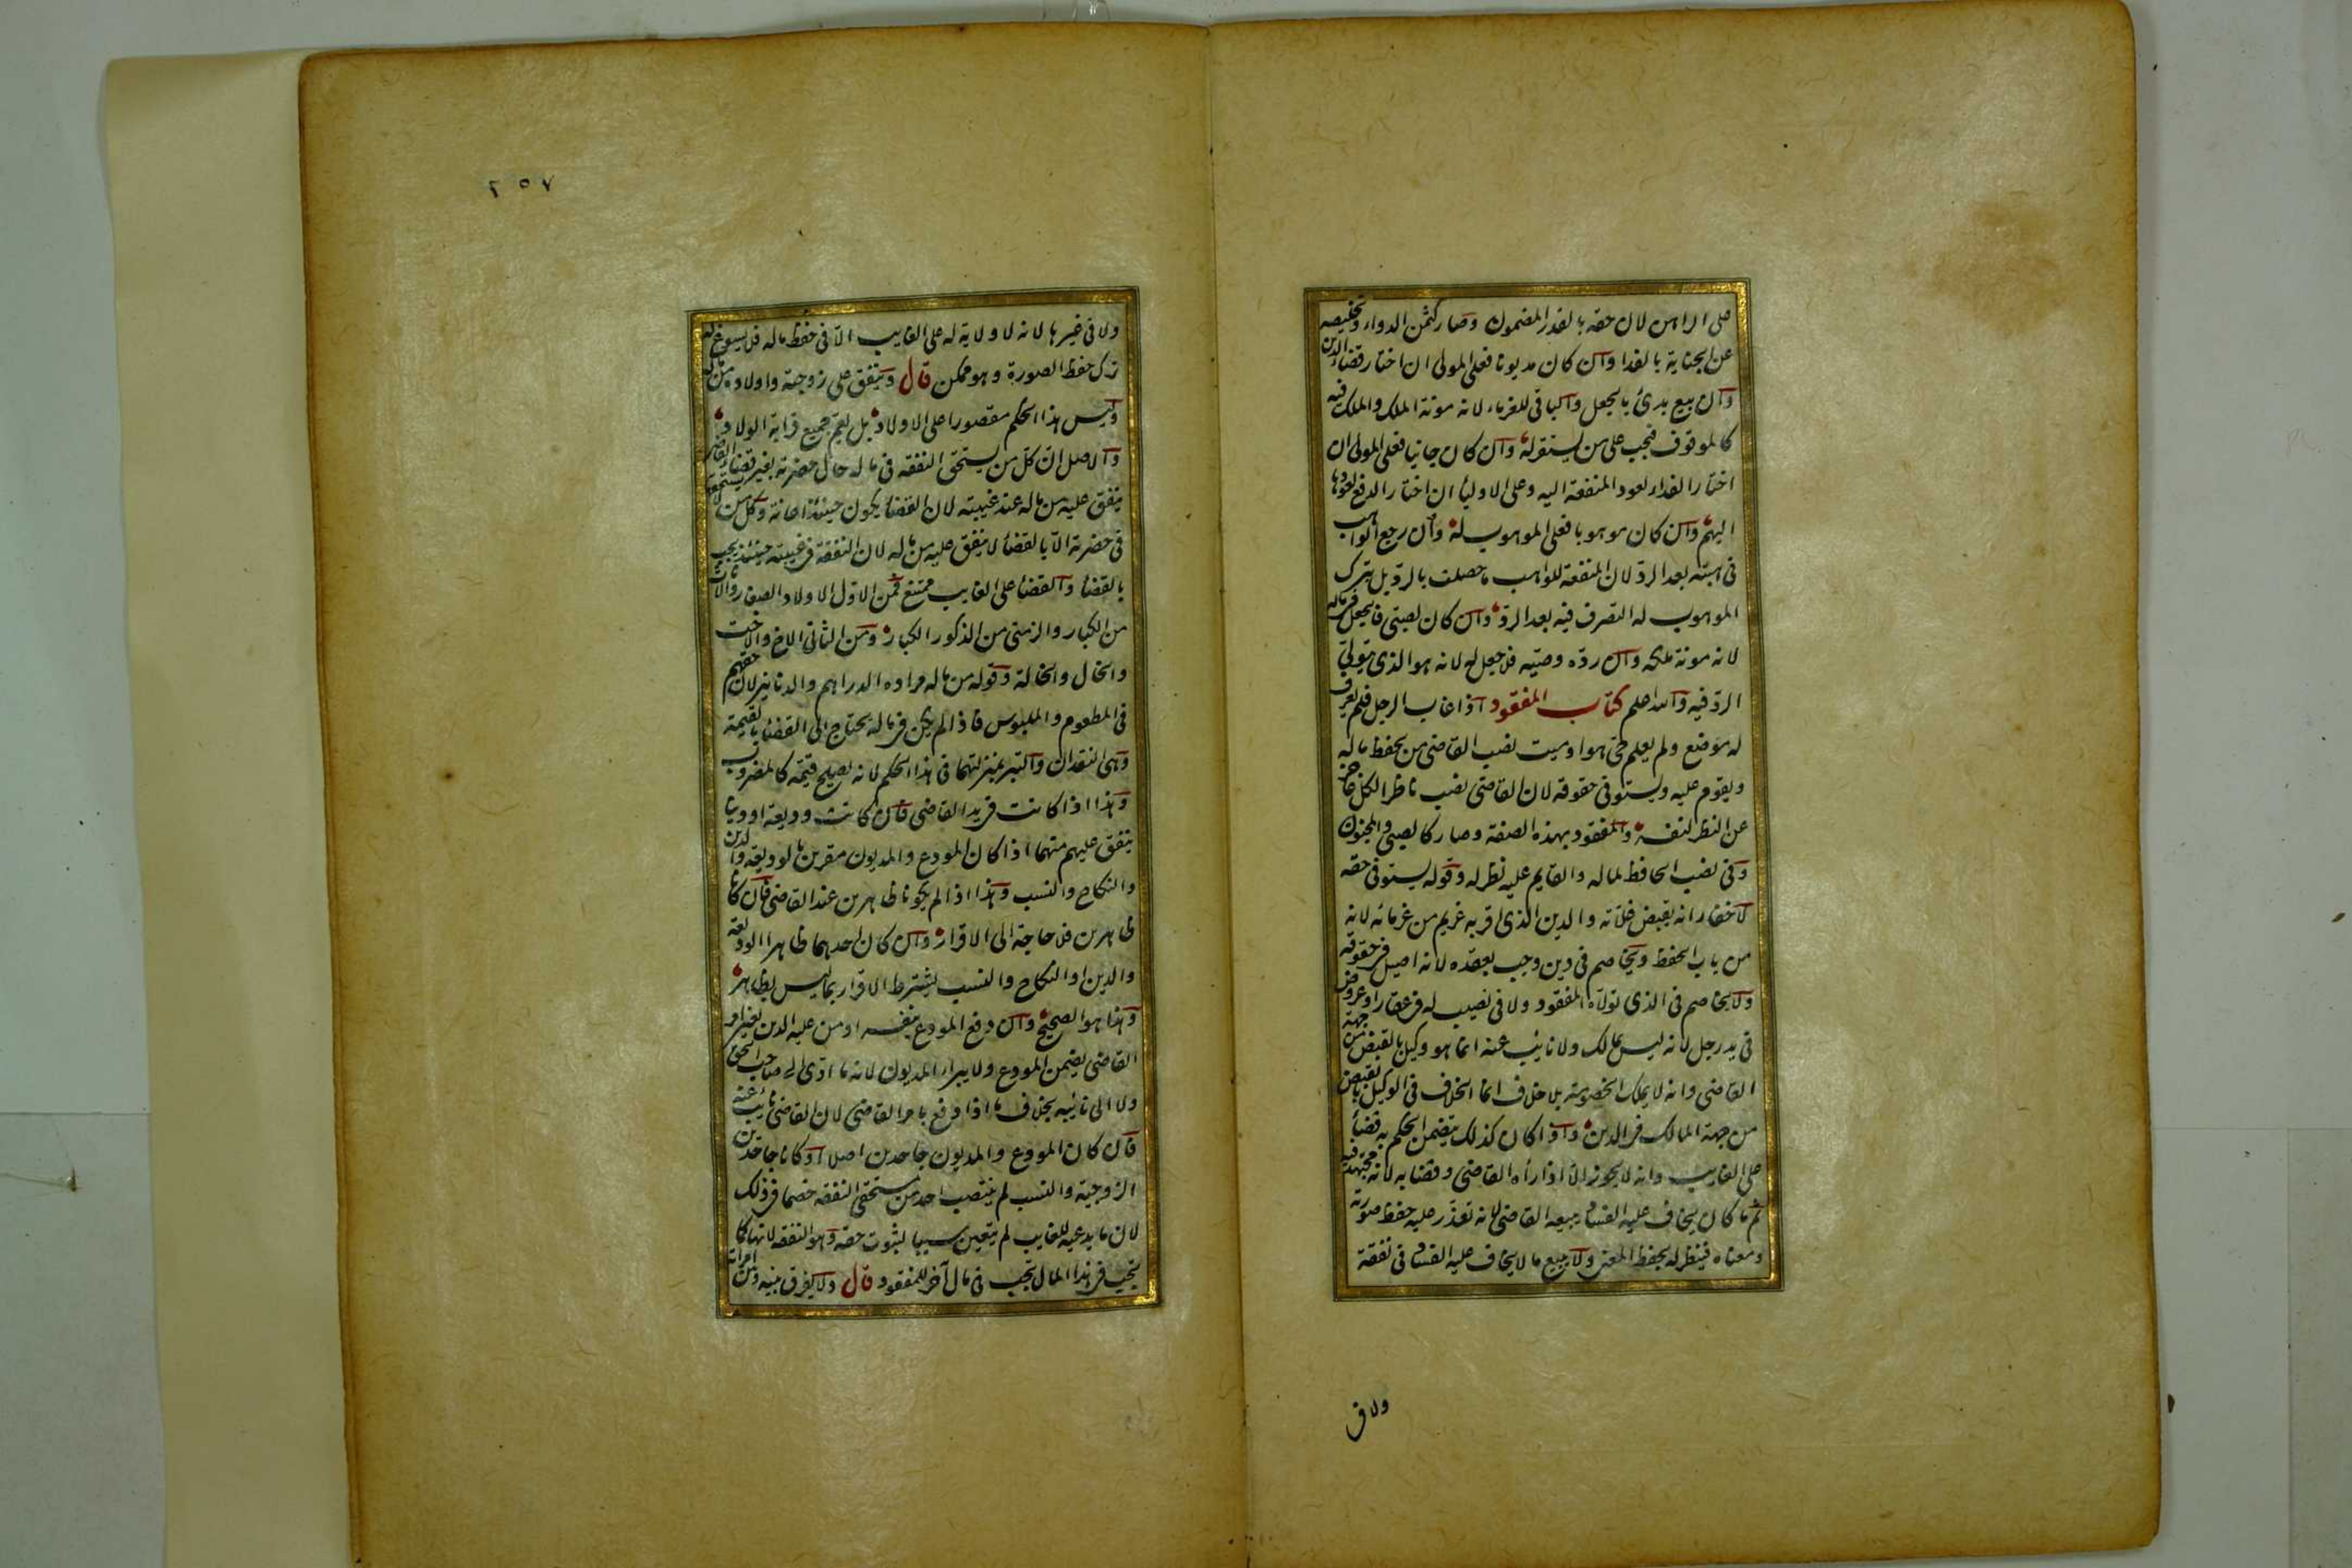 على الراهن لان حقه بالقدر المضمون وصار كثمن الدواء وتخليصه
عن الجناية بالفدا وان كان مديونا فعلى المولى ان اختار قضاء الدين
وان بيع بدئ بالجعل والباقى للغرماء لانه مونة الملك والملك فيه
كالموقوف فيجب على من يستقر له وان كان جانيا فعلى المولى ان
اختار الفداء لعود المنفعة اليه وعلى الاوليأ ان اختار الدفع لعودها
اليهم وان كان موهوبا فعلى الموهوب له وان رجع الواهب
فى هبته بعد الرد لان المنفعة للواهب ما حصلت بالرد بل بترك
الموهوب له التصرف فيه بعد الرد وان كان لصبى فالجعل فى ماله
لانه مونة ملكه وان رده وصيه فلا جعل له لانه هو الذى يتولى
الرد فيه والله اعلم كتاب المفقود اذا غاب الرجل فلم يعرف
له موضع ولم يعلم حى هو او ميت نصب القاضى من يحفظ ماله
ويقوم عليه ويستوفى حقوقه لان القاضى نصب ناظرا لكل عاجز
عن النظر لنفسه والمفقود بهذه الصفة وصار كالصبى والمجنون
وفى نصب الحافظ لماله والقايم عليه نظر له وقوله يستوفى حقه
لاخفا انه يقبض غلاته والدين الذى اقر به غريم من غرمائه لانه
من باب الحفظ ويخاصم فى دين وجب بعقده لانه اصيل فى حقوقه
ولا يخاصم فى الذى تولاه المفقود ولا فى نصيب له فى عقار او عروض
فى يد رجل لانه ليس بمالك ولا نايب عنه انما هو وكيل بالقبض من جهة
القاضى وانه لا يملك الخصومة بلا خلاف انما الخلاف فى الوكيل بالقبض
من جهة المالك فى الدين واذا كان كذلك يتضمن الحكم به قضأ
على الغايب وانه لا يجوز الا اذا رأه القاضى وقضا به لانه مجتهد فيه
ثم ما كان يخاف عليه الفساد يبيعه القاضى لانه تعذر عليه حفظ صورته
ومعناه فينظر له بحفظ المعنى ولا يبيع ما لا يخاف عليه الفساد فى نفقة
ولا فى
٢٥٧
ولا فى غيرها لانه لا ولاية له على الغايب الا فى حفظ ماله فلا يسوغ له
ترك حفظ الصورة وهو ممكن قال وينفق على زوجته واولاده من ماله
وليس هذا الحكم مقصورا على الاولاد بل يعم جميع قرابة الولاد
والاصل ان كل من يستحق النفقة فى ماله حال حضرته بغير قضاء القاضى
ينفق عليه من ماله عند غيبته لان القضأ يكون حينئذ اعانة وكل من لا يستحقها
فى حضرته الا بالقضأ لا ينفق عليه من ماله لان النفقة فى غيبته حينئذ يجب
بالقضأ والقضأ على الغايب ممتنع فمن الاول الاولاد الصغار والاناث
من الكبار والزمنى من الذكور الكبار ومن الثانى الاخ والاخت
والخال والخالة وقوله من ماله مراده الدراهم والدنانير لان حقهم
فى المطعوم والملبوس فاذا لم يكن فى ماله يحتاج الى القضأ بالقيمة
وهى النقدان والتبر بمنزلتهما فى هذا الحكم لانه يصلح قيمة كالمضروب
وهذا اذا كانت فى يد القاضى فان كانت وديعة او دينا
ينفق عليهم منهما اذا كان المودع والمديون مقرين بالوديعة والدين
والنكاح والنسب وهذا اذا لم يكونا ظاهرين عند القاضى فان كانا
ظاهرين فلا حاجة الى الاقرار وان كان احدهما ظاهرا الوديعة
والدين او النكاح والنسب يشترط الاقرار بما ليس بظاهر
وهذا هو الصحيح وان دفع المودع بنفسه او من عليه الدين بغير امر
القاضى يضمن المودع ولا يبرأ المديون لانه ما ادى الى صاحب الحق
ولا الى نائبه بخلاف ما اذا دفع بامر القاضى لان القاضى نائب عنه
فان كان المودع والمديون جاحدين اصلا او كانا جاحدين
الزوجية والنسب لم ينتصب احد من مستحقى النفقة خصما فى ذلك
لان ما يدعيه للغايب لم يتعين سببا لثبوت حقه وهو النفقة لانها كما
يجب فى هذا المال يجب فى مال آخر للمفقود قال ولا يفرق بينه وبين امراته